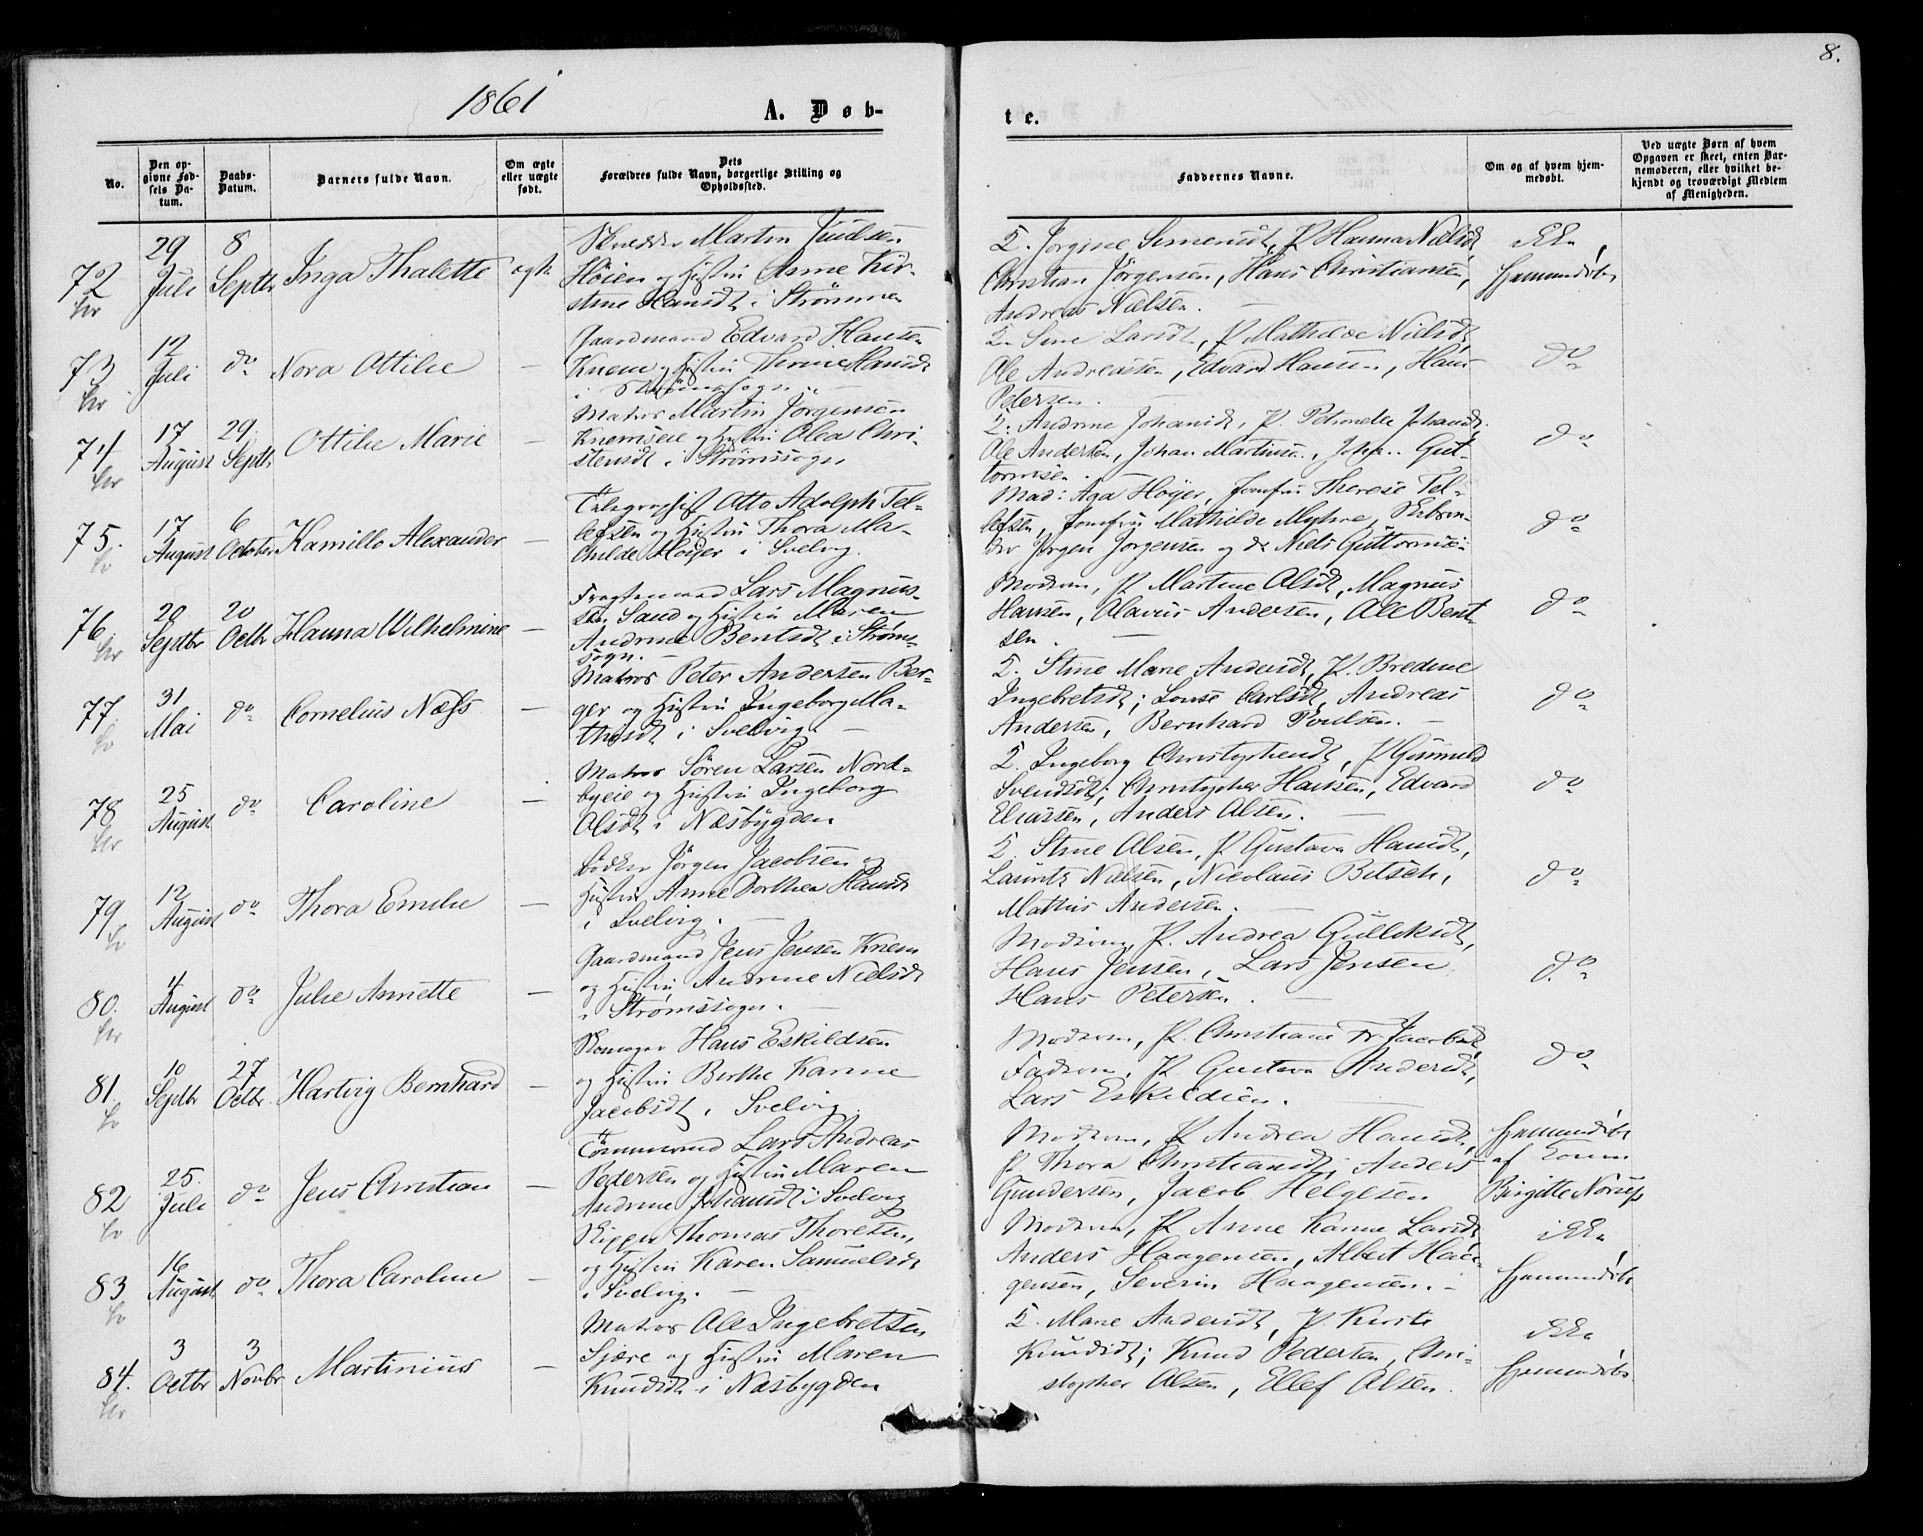 8.
1861
A. Døb-
te.
No.
Den opgivne Fødsels Datum.
Daabs-Datum.
Barnets fulde Navn.
Om ægte eller uægte født.
Dets Forældres fulde Navn, borgerlige Stilling og Opholdssted.
Faddernes Navne.
Om og af hvem hjemmedøbt.
Ved uægte Børn af hvem Opgaven er skeet, enten Barnemoderen, eller hvilket bekjendt og troværdigt Medlem af Menigheden.
72
29 Juli
8 Septbr
Inga Thalette
ægte
Martin Juelsen
Høien og Hustru Anne Kir-
stine Hansdt i Strømmen
Jorgine Simensdt, P. Hanna Nielsdt,
Christian Jörgensen, Hans Christiansen,
Andreas Nielsen.
ikke
hjemmedøbt
73
12 Juli
do
Nora Ottilie
—
Gaardmand Edvard Hansen
Knem og Hustru Thorine Hansdt
i Strømssogn
Sine Larsdt, P. Mathilde Nielsdt,
Ole Andreassen, Edvard Hansen, Hans
Petersen.
do
74
17 August
29 Septbr
Ottilie Marie
—
Matros Martin Jörgensen
Knemseie og Hustru Olea Chri-
stensdt i Strømssogn
Andrine Johansdt, P. Petronelle Johansdt,
Ole Andersen, Johan Martinsen, Johan Gut-
tormsen.
do
75.
17 August
6 October
Kamillo Alexander
—
Telegrafist Otto Adolph Tel-
lefsen og Hustru Thora Ma-
thilde Höyer i Svelvig.
Mad: Aga Höyer, Jomfru Therese Tel-
lefsen, Jomfru Mathilde Myhre,
Jörgen Jörgensen og do Niels Guttormsen
do
76
20 Septbr
20 Octbr
Hanna Wilhelmine
—
Fragtemand Lars Magnus-
sen Sand og Hustru Maren
Andrine Bentsdt i Strøms-
sogn.
Modren, P. Martine Olsdt, Magnus
Hansen, Olavus Andersen, Ole Bent-
sen.
do
77
31 Mai
do
Cornelius Næss
—
Matros Peter Andersen Ber-
ger og Hustru Ingeborg Ma-
thisdt i Svelvig
Stine Marie Andersdt, P. Bredine
Ingebretsdt; Louise Carlsdt, Andreas
Andersen, Bernhard Poulsen.
do
78
25 August
do
Caroline
—
Matros Sören Larsen Nord-
byeie og Hustru Ingeborg
Olsdt i Næsbygden
Ingeborg Christophersdt, P. Gunnild
Svendsdt; Christopher Hansen, Edvard
Eliassen, Anders Olsen.
do
79
12 August
do
Thora Emilie
—
Bødker Jörgen Jacobsen og
Hustru Anne Dorthea Hansdt
i Svelvig.
Stine Olsen, P. Gustava Hansdt,
Lauritz Nielsen, Nicolaus Bitsch,
Mathis Andersen.
do
80.
4 August
do
Julie Annette
—
Gaardmand Jens Jensen Knem
og Hustru Andrine Nielsdt
i Strømssogn.
Modren, P. Andrea Gulliksdt,
Hans Jensen, Lars Jensen
Hans Petersen.
do
81.
10 Septbr
27 Octbr.
Hartvig Bernhard
—
Skomager Hans Eskildsen
og Hustru Berthe Karine
Jacobsdt i Svelvig
Modren, P. Christiane Jacobsdt,
Fadren, P. Gustava Andersdt,
Lars Eskildsen.
do
82
25. Juli
do
Jens Christian
—
Tømmermand Lars Andreas
Pedersen og Hustru Maren
Andrine Johansdt i Svelvig
Modren, P. Andrea Hansdt,
P. Thora Christiansdt; Anders
Gundersen, Jacob Helgesen
hjemmedøbt
af
Birgitte
83
16 August
do
Thora Caroline
—
Thomas Thoresen,
og Hustru Karen Samuelsdt
i Svelvig.
Modren, P. Anne Karine Larsdt
Anders Haagensen, Albert Haa-
gensen, Severin Haagensen.
ikke
hjemmedøbt
84.
3 Octbr
3 Novbr
Martinius
—
Matros Ole Ingebretsen
og Hustru Maren
Knudsdt i Næsbygden
Marie Andersdt, P. Kirsti
Knudsdt; Knud Pedersen, Chri-
stopher Olsen, Ellef Olsen.
ikke
hjemmedøbt